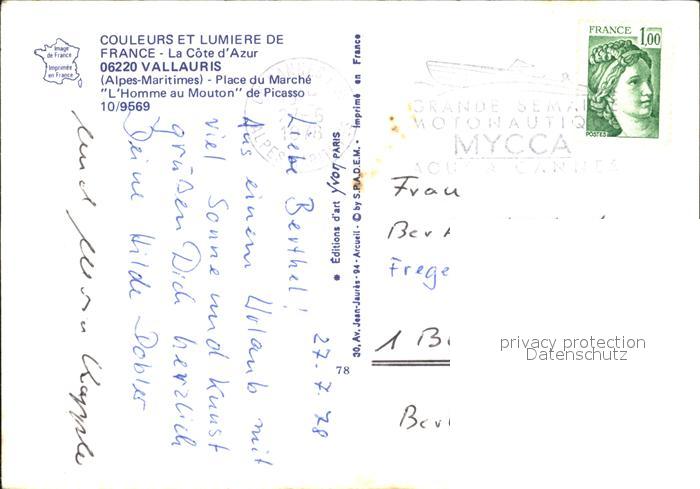 COULEURS ET LUMIERE DE
FRANCE - La Côte d'Azur
06220 VALLAURIS
(Alpes-Maritimes) - Place du Marché
"L'Homme au Mouton" de Picasso
10/9569
Image
de France
Imprimée
en France
27.7.78
Liebe Berthel!
Aus einem Urlaub mit
viel Sonne und Kunst
grüßen Dich herzlich
Deine Hilde Dobler
und
78
● Éditions d'art Yvon PARIS
30, Av. Jean-Jaurès - 94 - Arcueil - © by S.P.A.D.E.M. - Imprimé en France
FRANCE
1,00
POSTES
GRANDE SEMAI
MOTONAUTIQ
MYCCA
AOUT A CANNES
Frau
Ber
Frege
1 B
Ber
privacy protection
Datenschutz